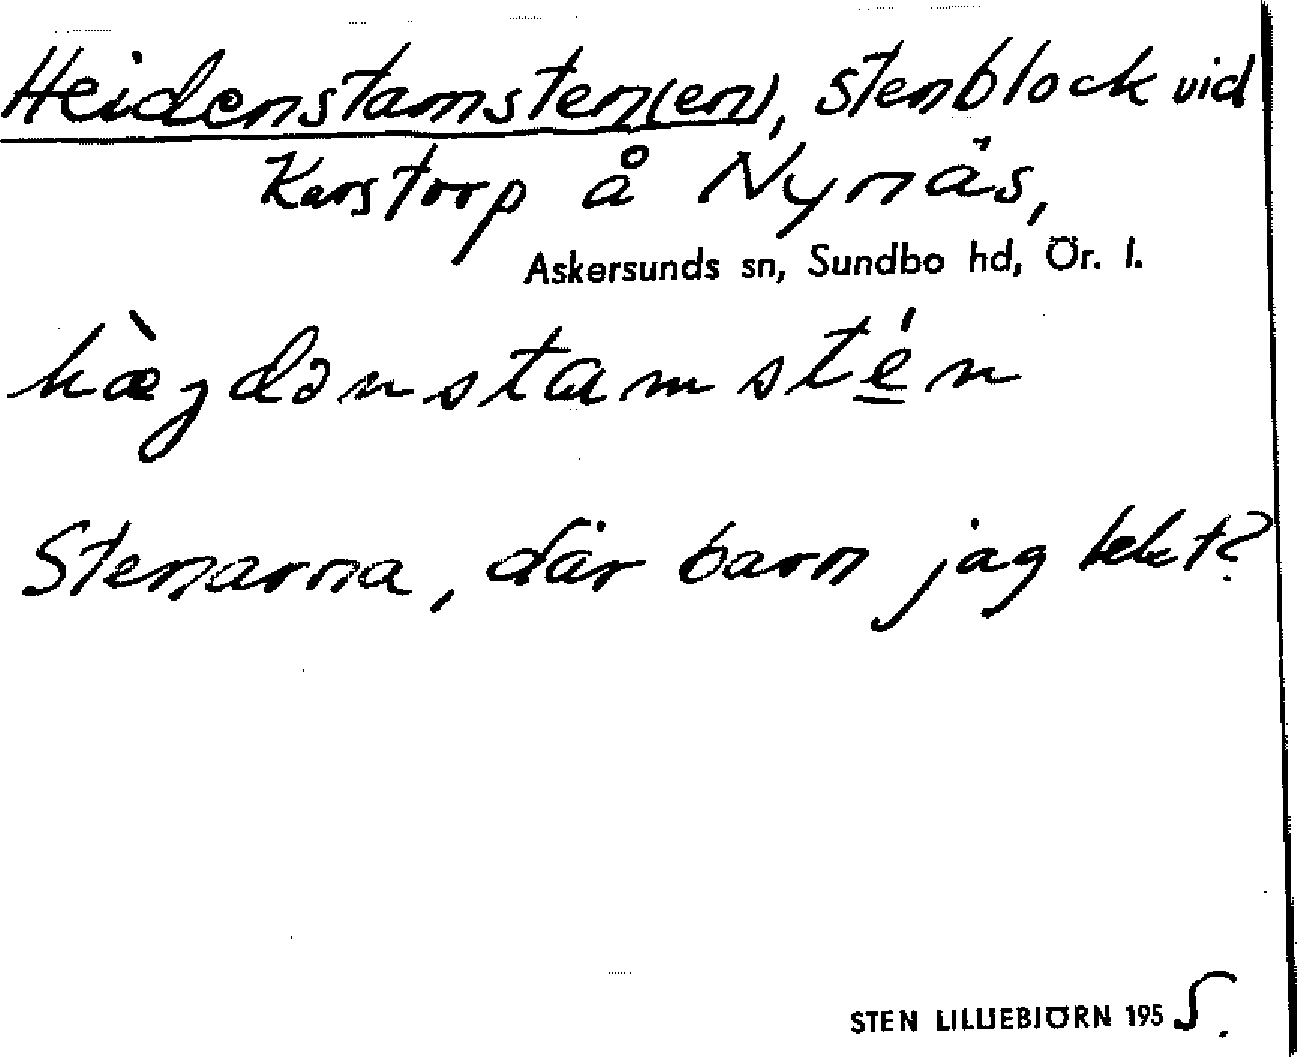 Heidenstamsten(en), stenblock vid
Karstorp å Nynäs,
Askersunds sn, Sundbo hd, Ör. l.
hæ̀jdənstamsté̱n
Stenarna, där barn jag lekt?
STEN LILLIEBJÖRN 1955.